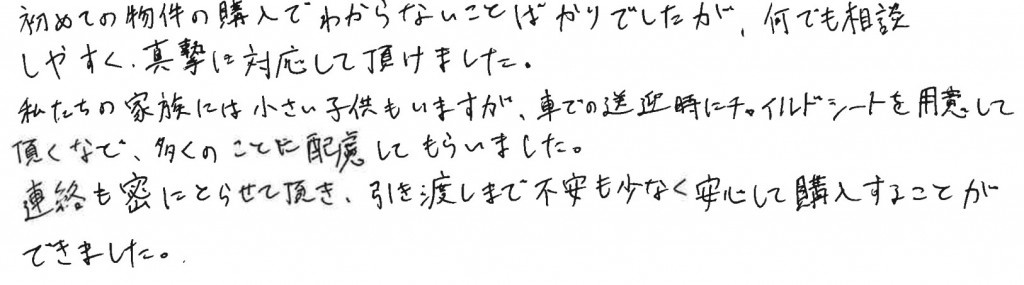 初めての物件の購入でわからないことばかりでしたが、何でも相談
しやすく、真摯に対応して頂けました。
私たちの家族には小さい子供もいますが、車での送迎時にチャイルドシートを用意して
頂くなで、多くのことに配慮してもらいました。
連絡も密にとらせて頂き、引き渡しまで不安も少なく安心して購入することが
できました。